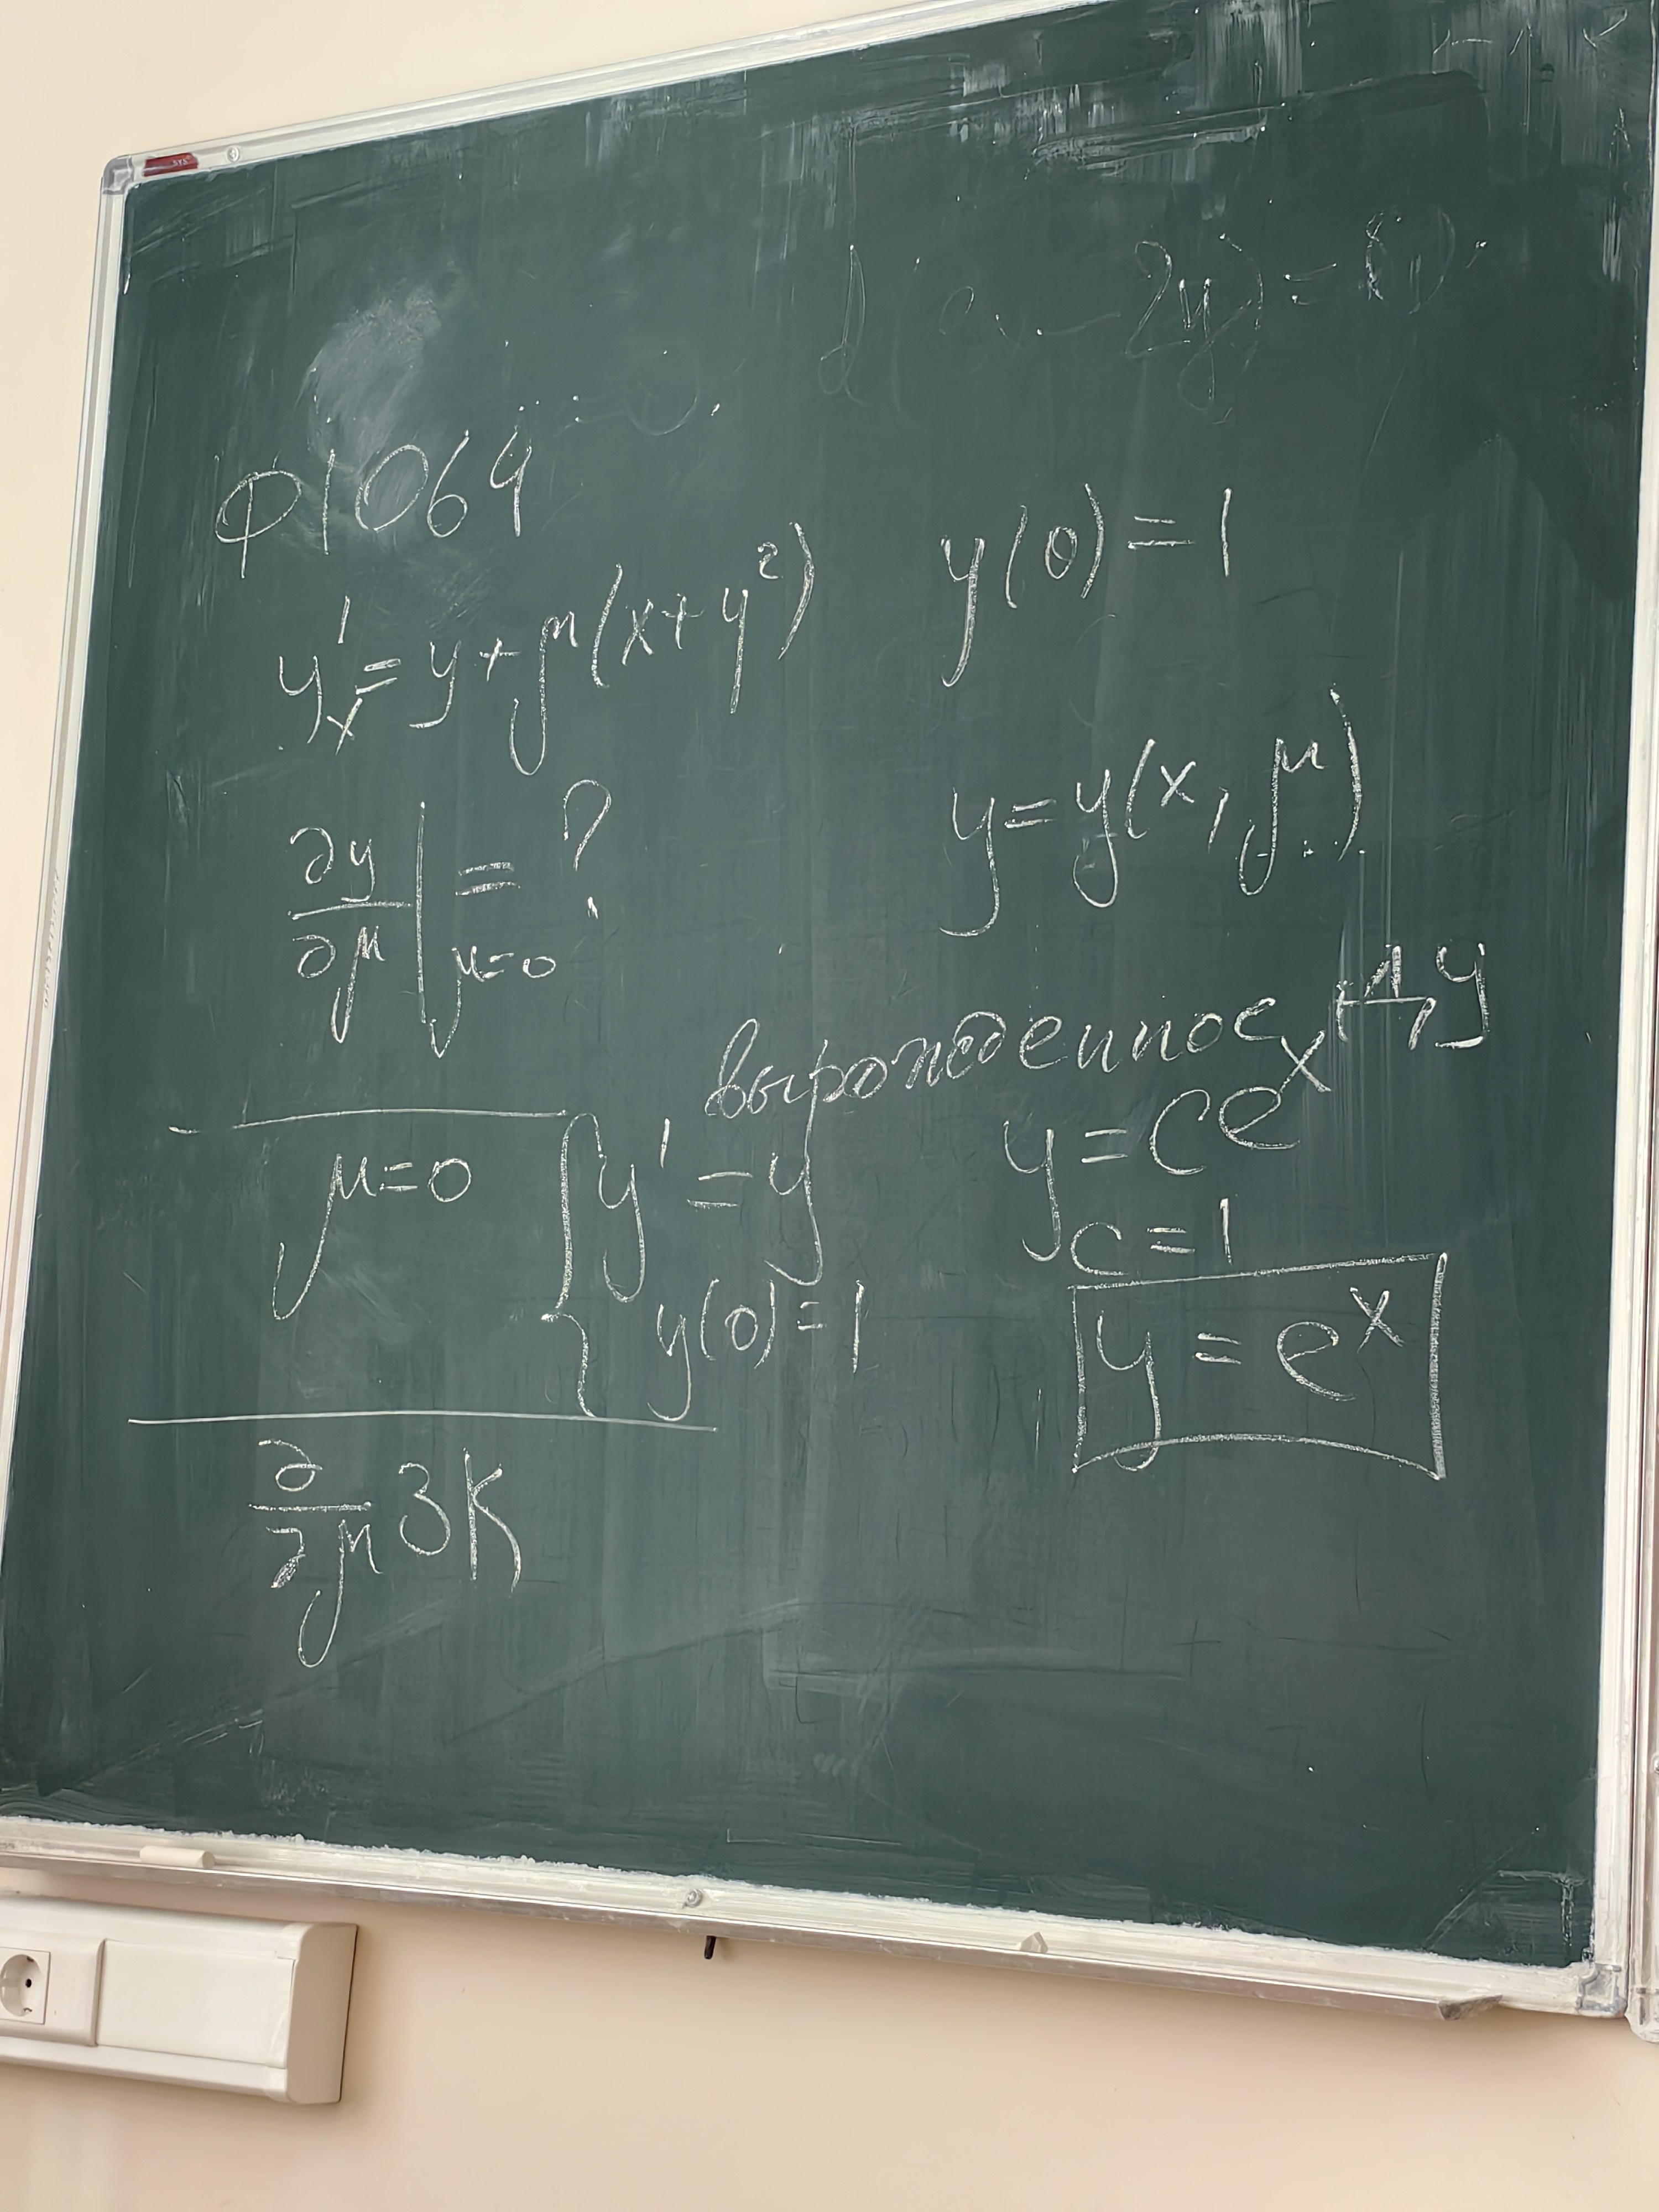 Ф1064
y'ₓ = y + μ(x + y²) y(0) = 1
∂y/∂μ |μ=0 = ? y = y(x, μ)
вырожденное ДУ
μ = 0 { y' = y y = Ceˣ
y(0) = 1 C = 1
y = eˣ
∂/∂μ ЗК